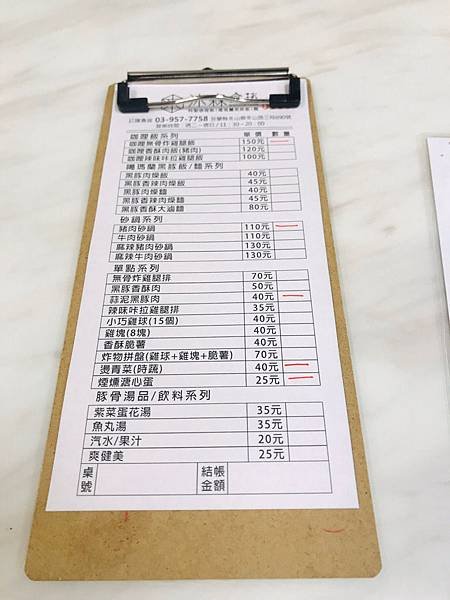 訂購專線 03-957-7758
咖哩飯系列 單價 數量
咖哩無骨炸雞腿飯 150元
咖哩香酥肉飯(豬肉) 120元
咖哩辣味咔拉雞腿飯 100元
噶瑪蘭黑豚飯/麵系列
黑豚肉燥飯 40元
黑豚香辣肉燥飯 45元
黑豚肉燥麵 40元
黑豚香辣肉燥麵 45元
黑豚香酥大滷麵 80元
砂鍋系列
豬肉砂鍋 110元
牛肉砂鍋 110元
麻辣豬肉砂鍋 130元
麻辣牛肉砂鍋 130元
單點系列
無骨炸雞腿排 70元
黑豚香酥肉 50元
蒜泥黑豚肉 40元
辣味咔拉雞腿排 35元
小巧雞球(15個) 40元
雞塊(8塊) 40元
香酥脆薯 40元
炸物拼盤(雞球+雞塊+脆薯) 70元
燙青菜(時蔬) 40元
煙燻溏心蛋 25元
豚骨湯品/飲料系列
紫菜蛋花湯 35元
魚丸湯 35元
汽水/果汁 20元
爽健美 25元
桌號 結帳金額